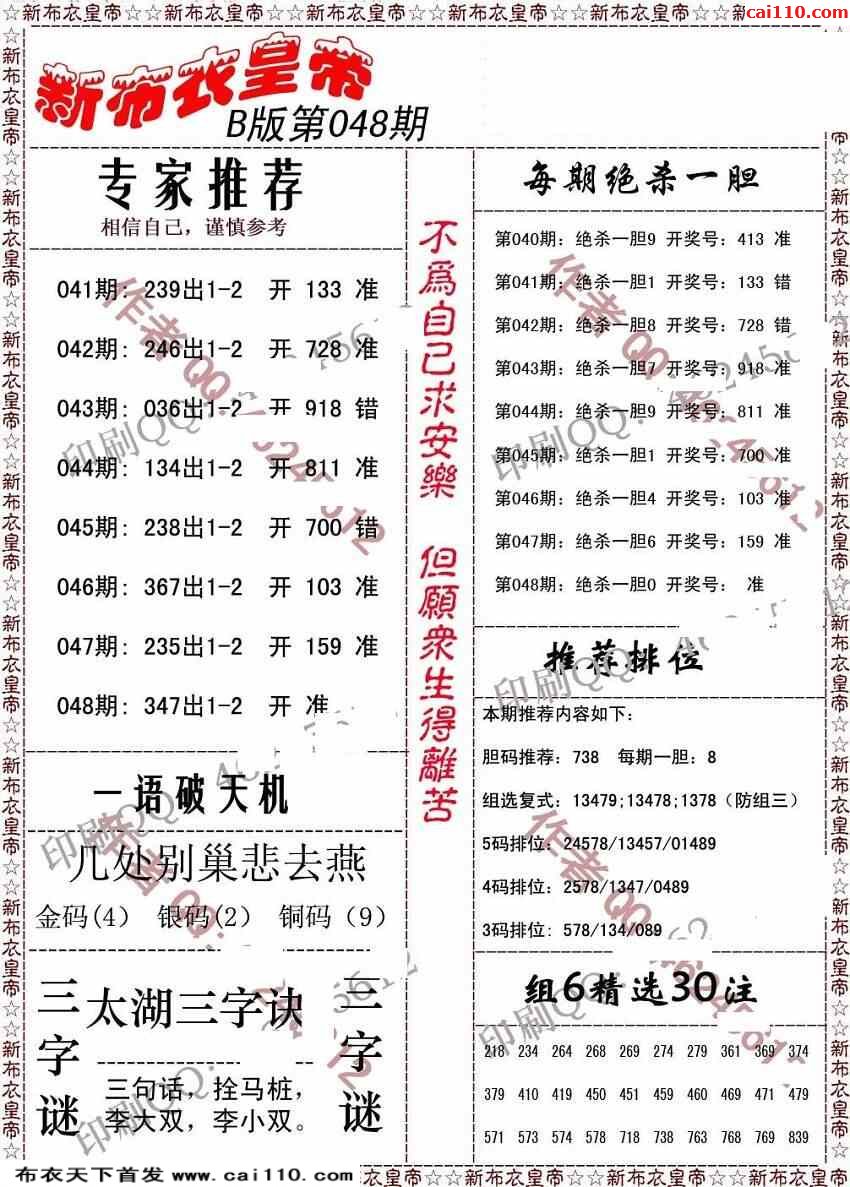 ☆☆新布衣皇帝☆☆新布衣皇帝☆☆新布衣皇帝☆☆新布衣皇帝☆☆新布衣皇帝☆☆新布衣皇帝☆☆新
cai110.com
新布衣皇帝
B版第048期
专家推荐
相信自己，谨慎参考
041期: 239出1-2 开 133 准
042期: 246出1-2 开 728 准
043期: 036出1-2 开 918 错
044期: 134出1-2 开 811 准
045期: 238出1-2 开 700 错
046期: 367出1-2 开 103 准
047期: 235出1-2 开 159 准
048期: 347出1-2 开 准
一语破天机
几处别巢悲去燕
金码(4) 银码(2) 铜码（9）
三字谜
太湖三字诀
三句话，拴马桩，
李大双，李小双。
三字谜
不爲自己求安樂 但願衆生得離苦
每期绝杀一胆
第040期: 绝杀一胆9 开奖号: 413 准
第041期: 绝杀一胆1 开奖号: 133 错
第042期: 绝杀一胆8 开奖号: 728 错
第043期: 绝杀一胆7 开奖号: 918 准
第044期: 绝杀一胆9 开奖号: 811 准
第045期: 绝杀一胆1 开奖号: 700 准
第046期: 绝杀一胆4 开奖号: 103 准
第047期: 绝杀一胆6 开奖号: 159 准
第048期: 绝杀一胆0 开奖号: 准
推荐排位
本期推荐内容如下:
胆码推荐: 738 每期一胆: 8
组选复式: 13479;13478;1378（防组三）
5码排位: 24578/13457/01489
4码排位: 2578/1347/0489
3码排位: 578/134/089
组6精选30注
218 234 264 268 269 274 279 361 369 374
379 410 419 450 451 459 460 469 471 479
571 573 574 578 718 738 763 768 769 839
布衣天下首发 www.cai110.com
衣皇帝☆☆新布衣皇帝☆☆新布衣皇帝☆☆新布衣皇帝☆☆